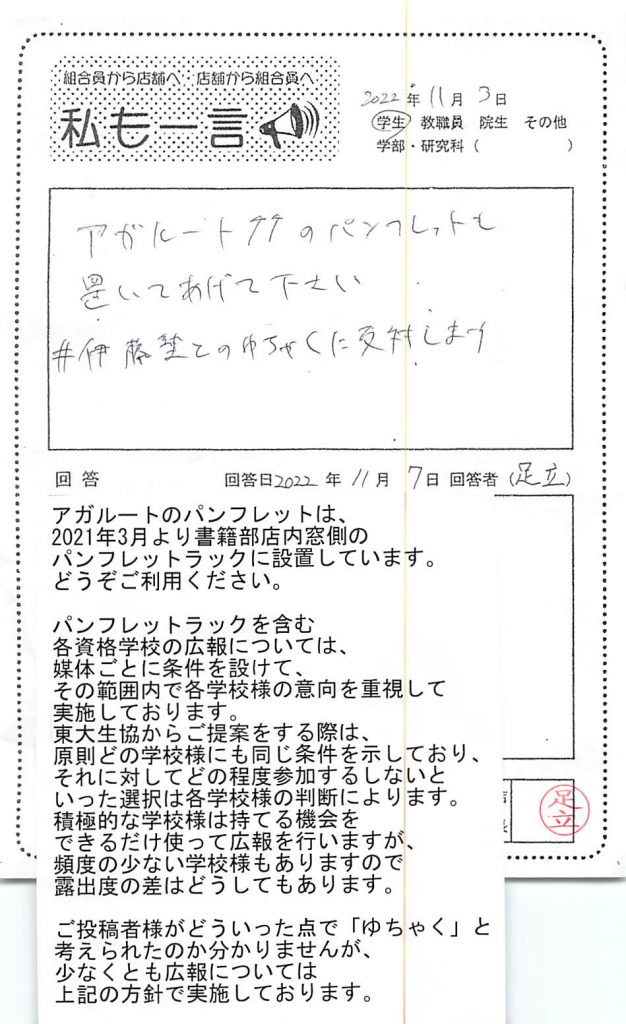 組合員から店舗へ・店舗から組合員へ
私も一言
2022年11月3日
学生 教職員 院生 その他
学部・研究科( )
アガルート↑↑のパンフレットも
置いてあげて下さい
#伊藤塾とのゆちゃくに反対します
回答 回答日2022年11月7日 回答者(足立)
アガルートのパンフレットは、
2021年3月より書籍部店内窓側の
パンフレットラックに設置しています。
どうぞご利用ください。
パンフレットラックを含む
各資格学校の広報については、
媒体ごとに条件を設けて、
その範囲内で各学校様の意向を重視して
実施しております。
東大生協からご提案をする際は、
原則どの学校様にも同じ条件を示しており、
それに対してどの程度参加するしないと
いった選択は各学校様の判断によります。
積極的な学校様は持てる機会を
できるだけ使って広報を行いますが、
頻度の少ない学校様もありますので
露出度の差はどうしてもあります。
足立
ご投稿者様がどういった点で「ゆちゃく」と
考えられたのか分かりませんが、
少なくとも広報については
上記の方針で実施しております。